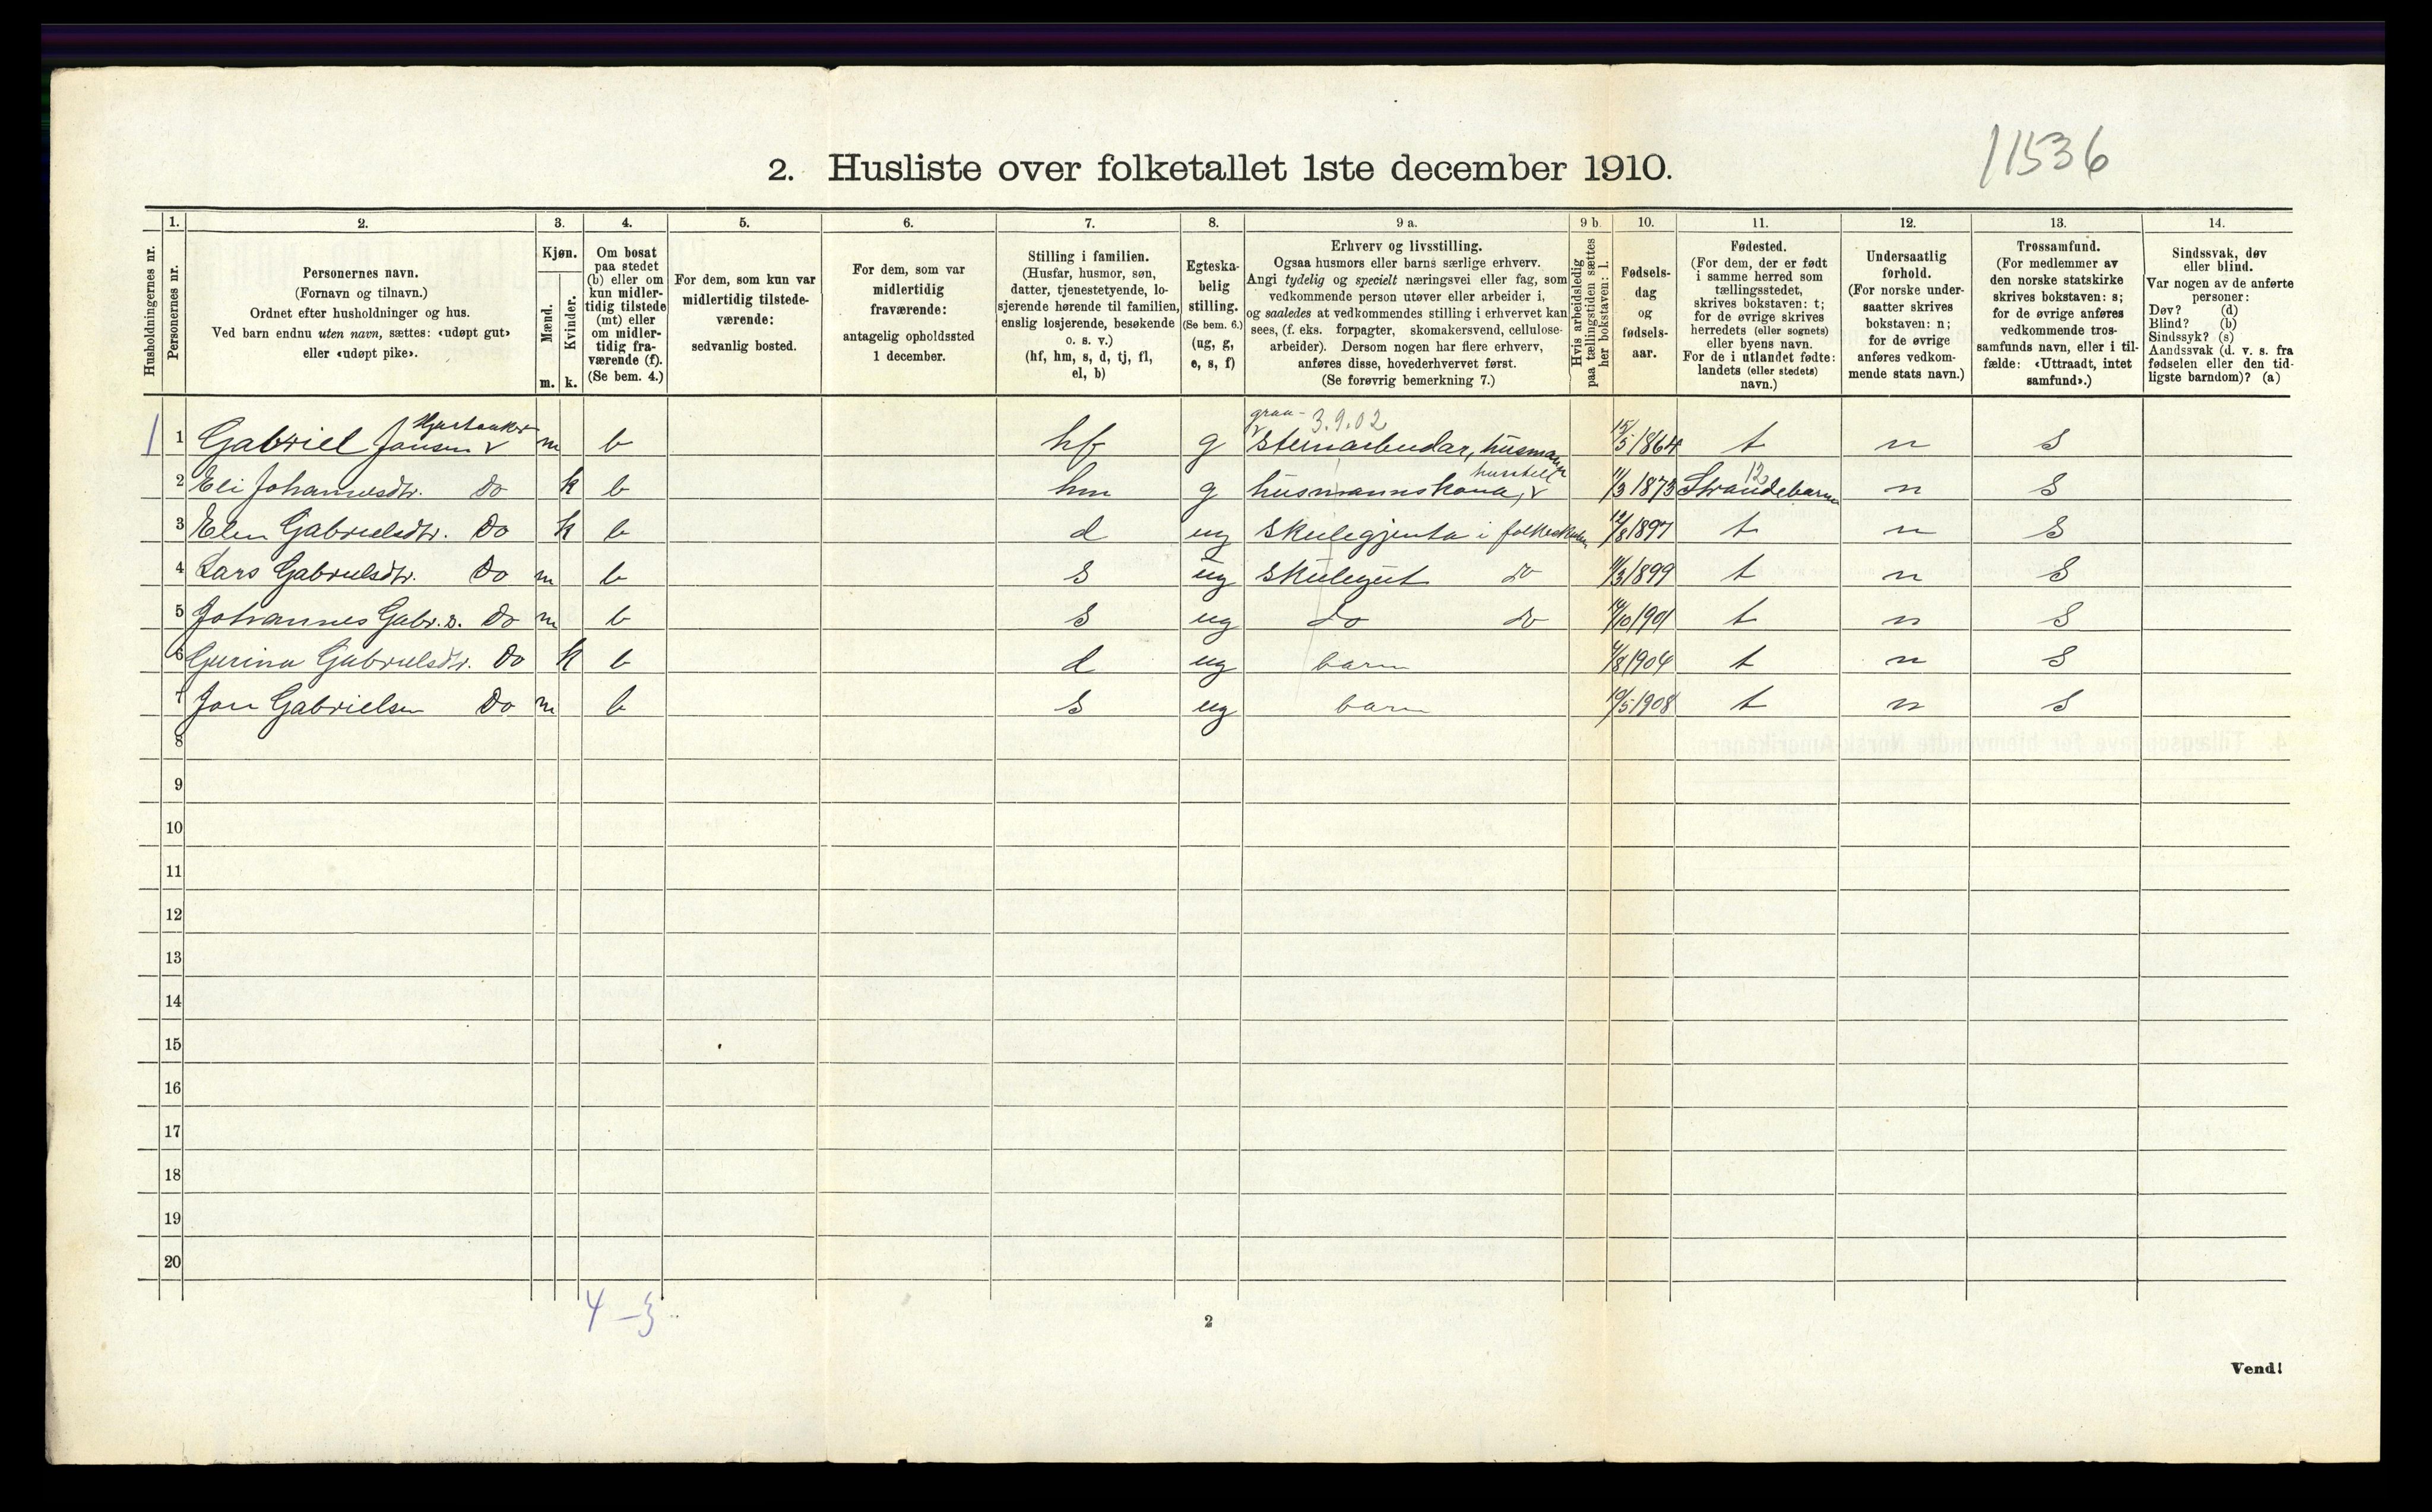 11536
2. Husliste over folketallet 1ste december 1910.
Husholdningernes nr.
1.
Personernes nr.
2.
Personernes navn.
(Fornavn og tilnavn.)
Ordnet efter husholdninger og hus.
Ved barn endnu uten navn, sættes: «udøpt gut»
eller «udøpt pike».
3.
Kjøn.
Mænd.
Kvinder.
m. k.
4.
Om bosat
paa stedet
(b) eller om
kun midler-
tidig tilstede
(mt) eller
om midler-
tidig fra-
værende (f).
(Se bem. 4.)
5.
For dem, som kun var
midlertidig tilstede-
værende:
sedvanlig bosted.
6.
For dem, som var
midlertidig
fraværende:
antagelig opholdssted
1 december.
7.
Stilling i familien.
(Husfar, husmor, søn,
datter, tjenestetyende, lo-
sjerende hørende til familien,
enslig losjerende, besøkende
o. s. v.)
(hf, hm, s, d, tj, fl,
el, b)
8.
Egteska-
belig
stilling.
(Se bem. 6.)
(ug, g,
e, s, f)
9 a.
Erhverv og livsstilling.
Ogsaa husmors eller barns særlige erhverv.
Angi tydelig og specielt næringsvei eller fag, som
vedkommende person utøver eller arbeider i,
og saaledes at vedkommendes stilling i erhvervet kan
sees, (f. eks. forpagter, skomakersvend, cellulose-
arbeider). Dersom nogen har flere erhverv,
anføres disse, hovederhvervet først.
(Se forøvrig bemerkning 7.)
9 b.
Hvis arbeidsledig
paa tællingstiden sættes
her bokstaven: l.
10.
Fødsels-
dag
og
fødsels-
aar.
11.
Fødested.
(For dem, der er født
i samme herred som
tællingsstedet,
skrives bokstaven: t;
for de øvrige skrives
herredets (eller sognets)
eller byens navn.
For de i utlandet fødte:
landets (eller stedets)
navn.)
12.
Undersaatlig
forhold.
(For norske under-
saatter skrives
bokstaven: n;
for de øvrige
anføres vedkom-
mende stats navn.)
13.
Trossamfund.
(For medlemmer av
den norske statskirke
skrives bokstaven: s;
for de øvrige anføres
vedkommende tros-
samfunds navn, eller i til-
fælde: «Uttraadt, intet
samfund».)
14.
Sindssvak, døv
eller blind.
Var nogen av de anførte
personer:
Døv? (d)
Blind? (b)
Sindssyk? (s)
Aandssvak (d. v. s. fra
fødselen eller den tid-
ligste barndom)? (a)
graa- 3.9.02
1 1 Gabriel Jansen m b hf g steinarbeidar, husmann 15/5 1864 t n s
husstell 12
2 Eli Johannesdtr. Do k b hm g husmannskona, 11/3 1873 Strandebarm n s
3 Elen Gabrielsdtr. Do k b d ug skulegjenta i folkeskulen 12/8 1897 t n s
4 Lars Gabrielsdtr. Do m b s ug skulegut do 11/3 1899 t n s
5 Johannes Gabr. s. Do m b s ug do do 14/10 1901 t n s
6 Gurina Gabrielsdtr. Do k b d ug barn 4/8 1904 t n s
7 Jon Gabrielsen Do m b s ug barn 10/5 1908 t n s
8
9
10
11
12
13
14
15
16
17
18
19
20
4 – 3
2
Vend!